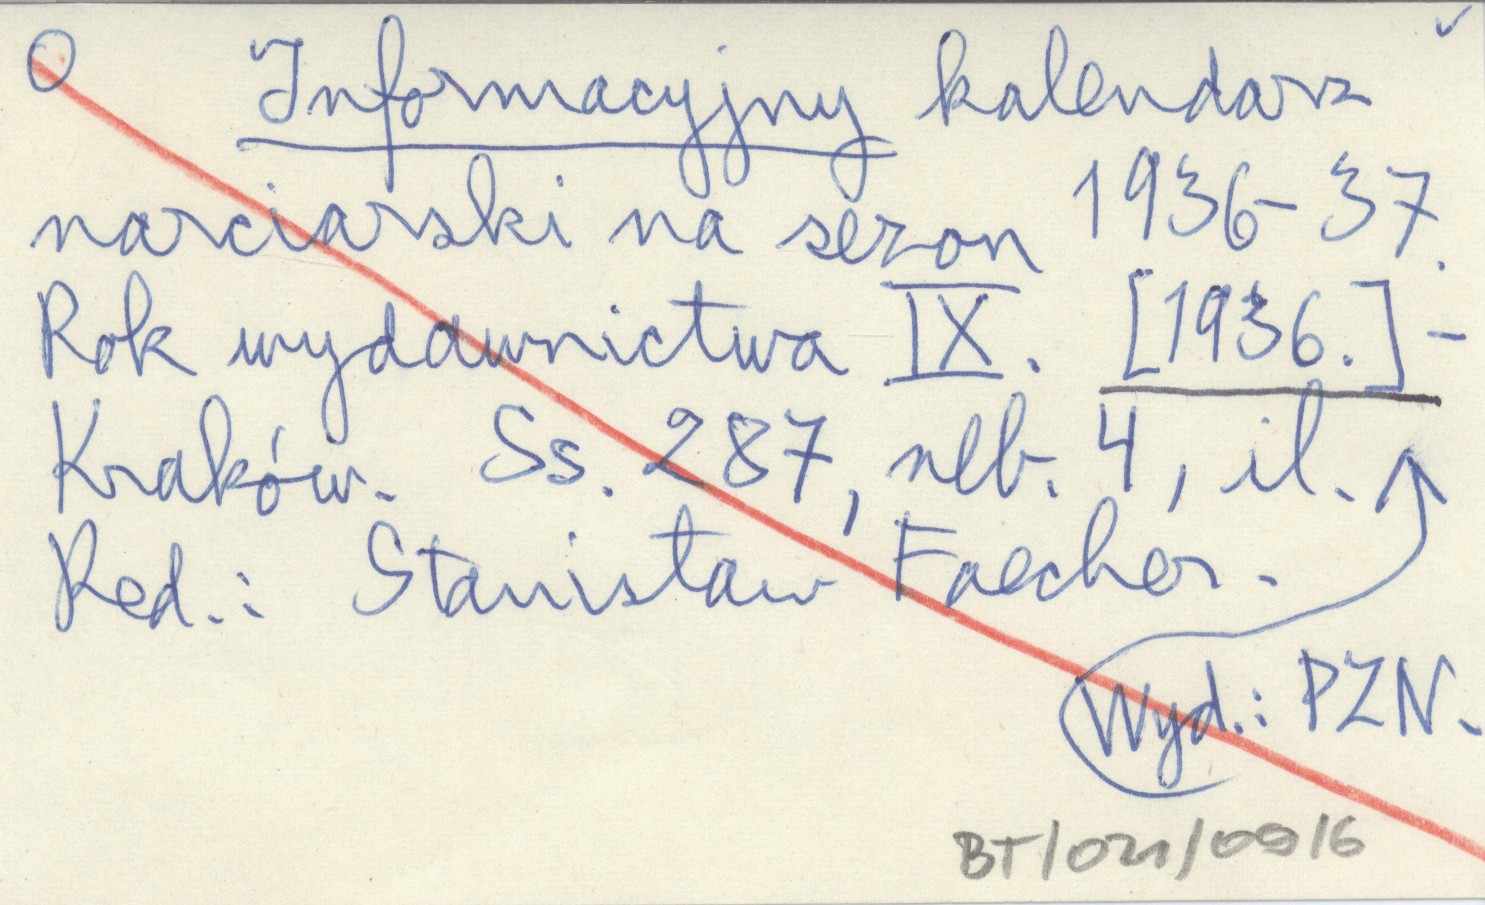 O Informacyjny kalendarz
narciarski na sezon 1936-37.
Rok wydawnictwa IX. [1936.] -
Kraków. Ss. 287, nlb. 4, il.
Red.: Stanisław Faecher.
Wyd.: PZN.
BT/021/09/6